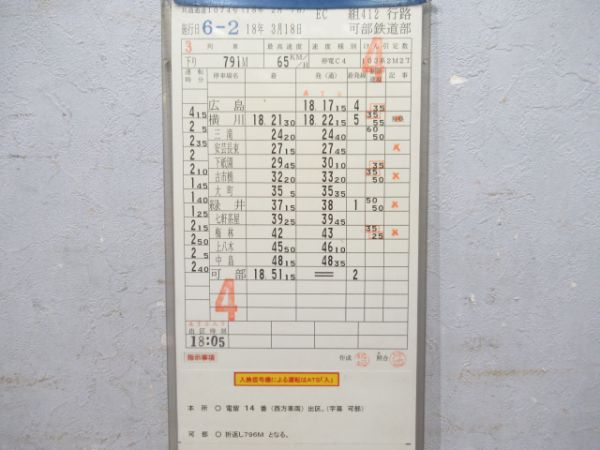 EC 組412 行路
施行日 6-2 18年 3月18日 可部鉄道部
3 列車 最高速度 速度種別 けん引定数
下り 791M 65KM/H 停電C4 103系2M2T
4
運転時分 停車場名 着 発(通) 着発線 制限速度 記事
広島 18.17 15 4 35
4 15
横川 18.21 30 18.22 15 5 35 55
2 5
三滝 24 20 24 40 60 50
2 35
安芸長束 27 15 27 45
2
下祗園 29 45 30 10 35
2 10
古市橋 32 20 33 20 35 50
2 15
大町 35 5 35 35
1 40
緑井 37 15 38 1 50 50
1 25
七軒茶屋 39 25 39 45
2 15
梅林 42 43 35 25
2 50
上八木 45 50 46 10
2 5
中島 48 15 48 35
2 40
可部 18.51 15 2
4
出区時刻
18:05
指示事項 作成 照合
入換信号機による運転はATS「入」
本所 ○ 電留 14 番 (西方車両) 出区。(字幕 可部)
可部 ○ 折返し796M となる。